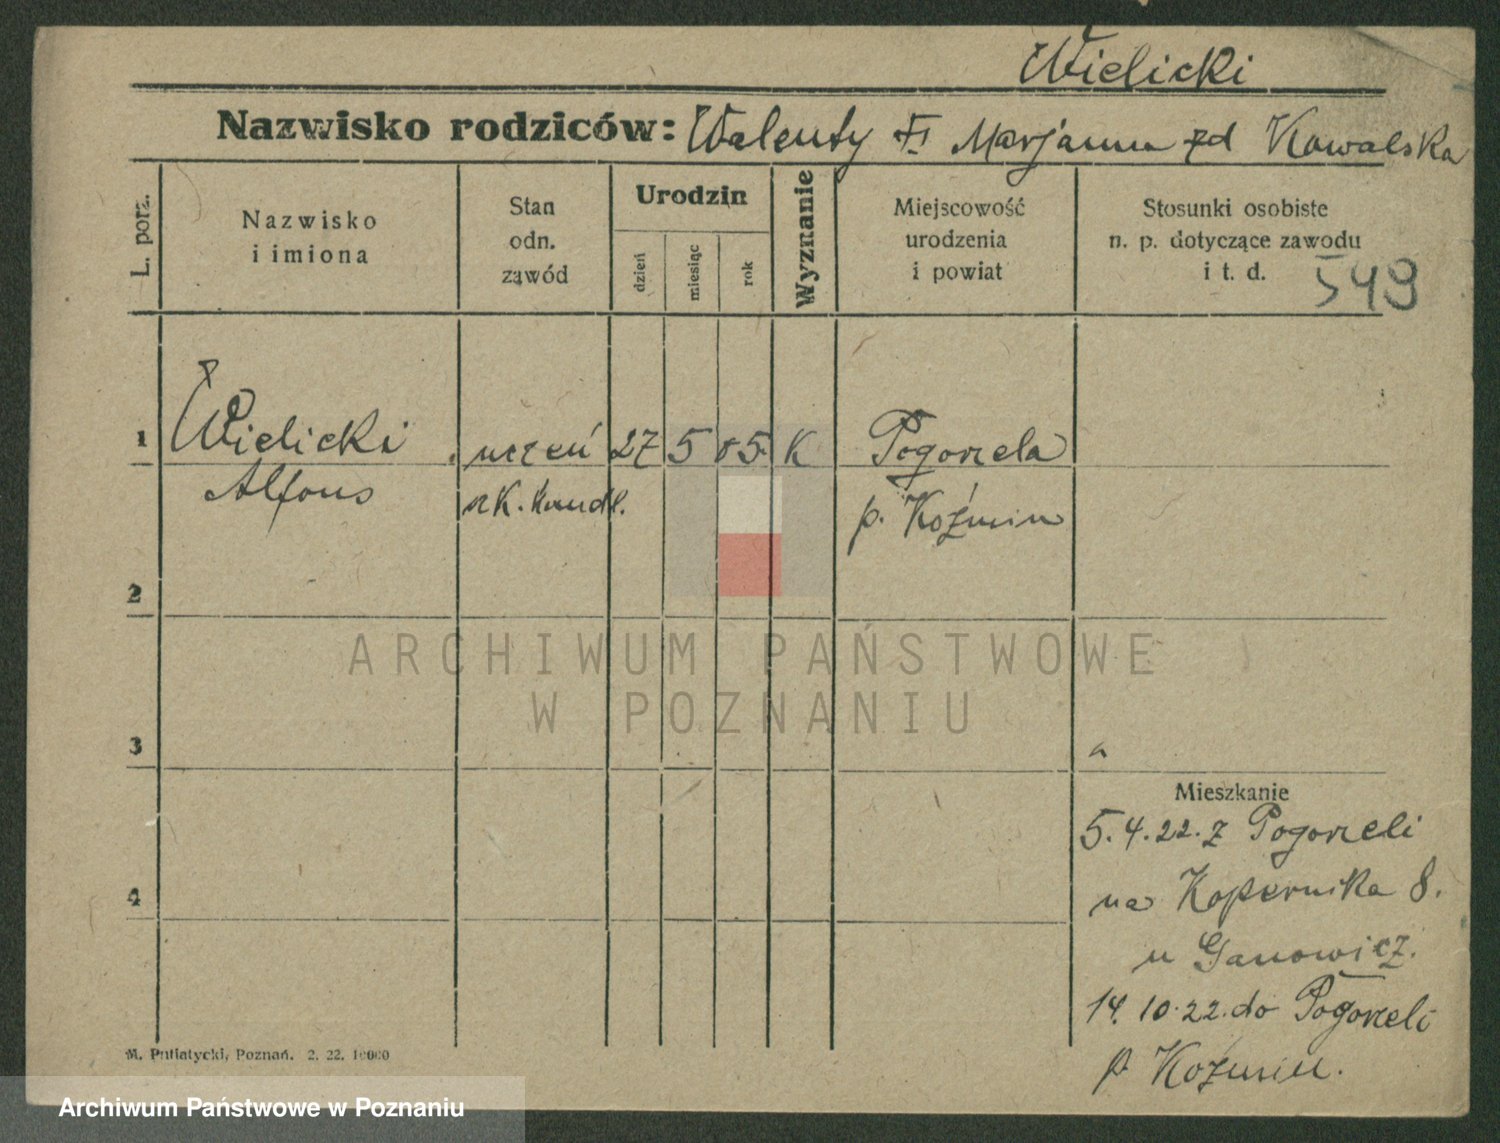 Wielicki
Nazwisko rodziców: Walenty Fi Marjanna zd Kowalska
L. porz.
Nazwisko
i imiona
Stan
odn.
zawód
Urodzin
dzień
miesiąc
rok
Wyznanie
Miejscowość
urodzenia
i powiat
Stosunki osobiste
n. p. dotyczące zawodu
i t. d.
549
1
Wielicki
Alfons
uczeń
handl.
27
5
05
K
Pogorzela
p. Koźmin
2
3
4
Mieszkanie
5.4.22. z Pogorzeli
na Kopernika 8.
u Ganowicz.
14.10.22. do Pogorzeli
p Koźmin.
M. Putiatycki, Poznań. 2. 22. 10000
ARCHIWUM PAŃSTWOWE
W POZNANIU
Archiwum Państwowe w Poznaniu